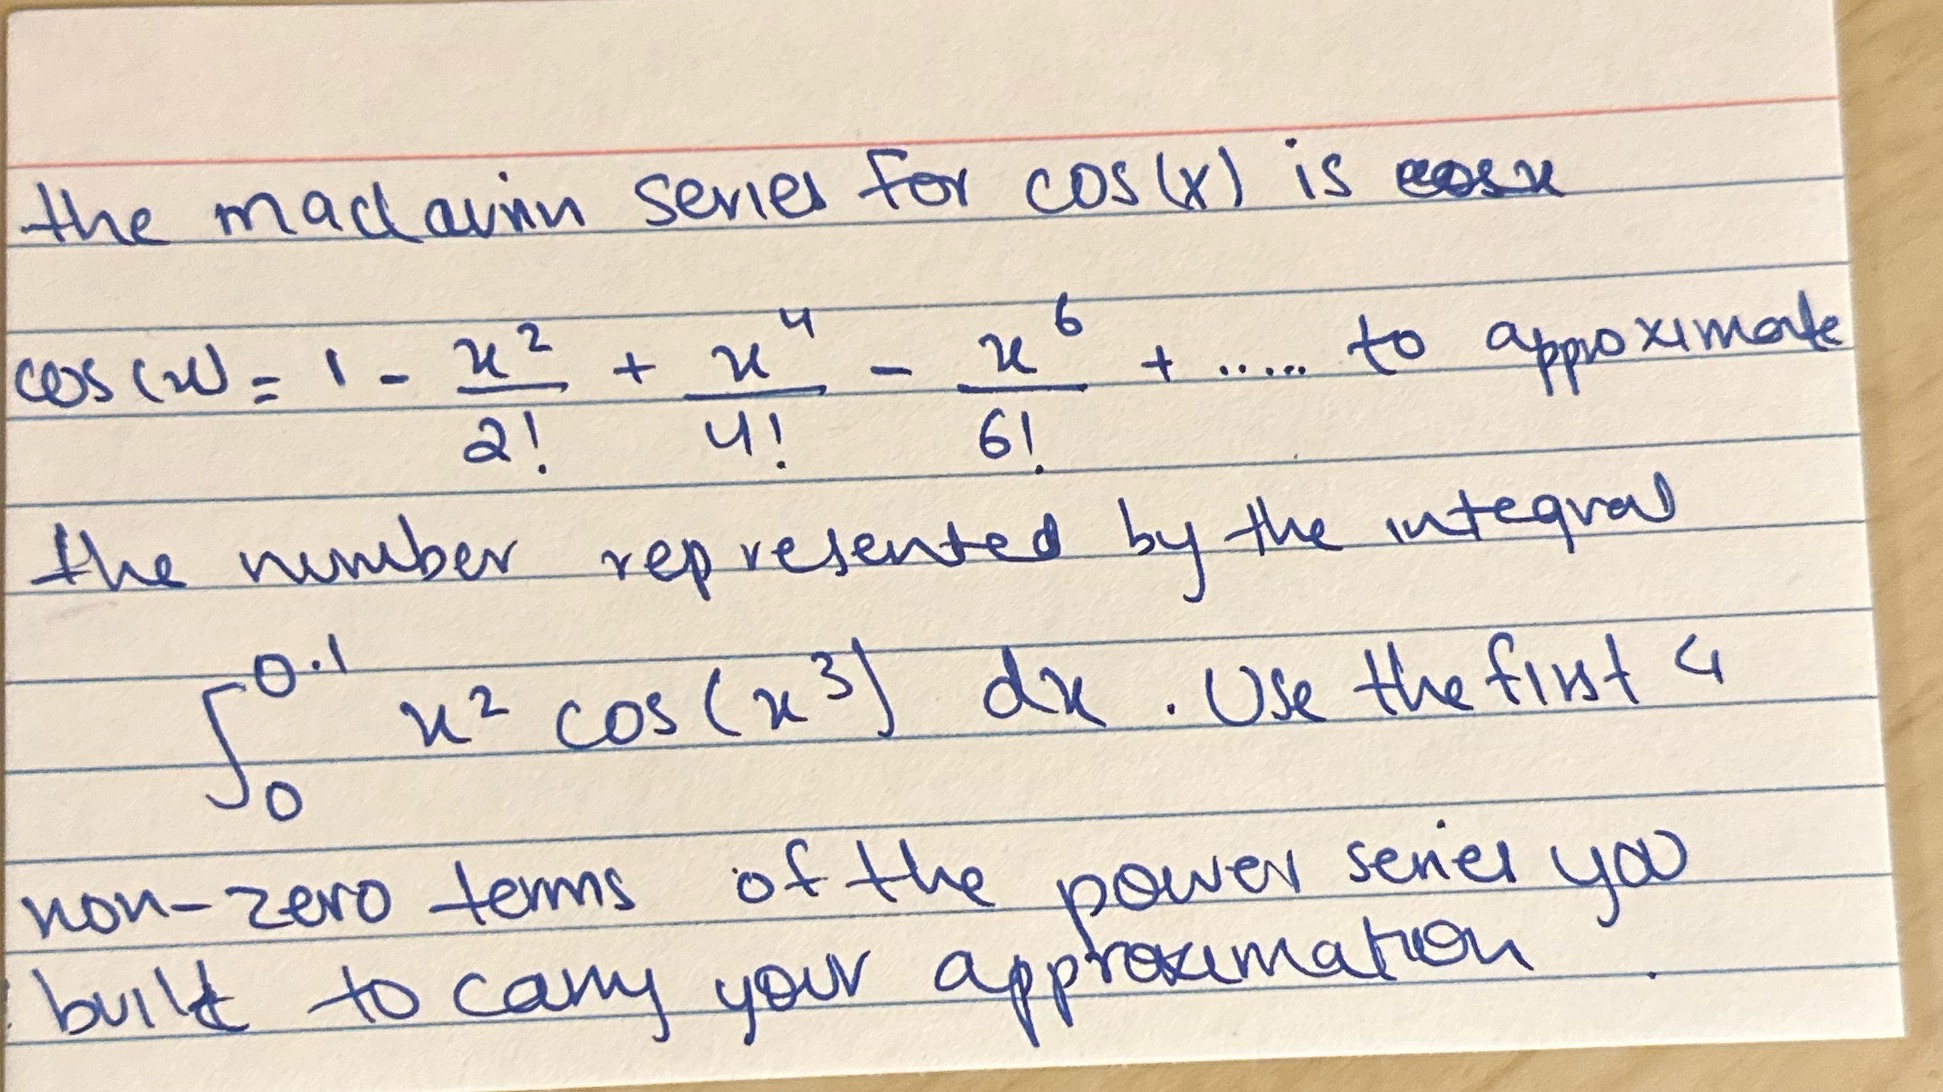 the maclaurin series for cos(x) is cosx
cos(x) = 1 - x²/2! + x⁴/4! - x⁶/6! + ..... to approximate
the number represented by the integral
∫₀^0.1 x² cos(x³) dx . Use the first 4
non-zero terms of the power series you
built to carry your approximation .